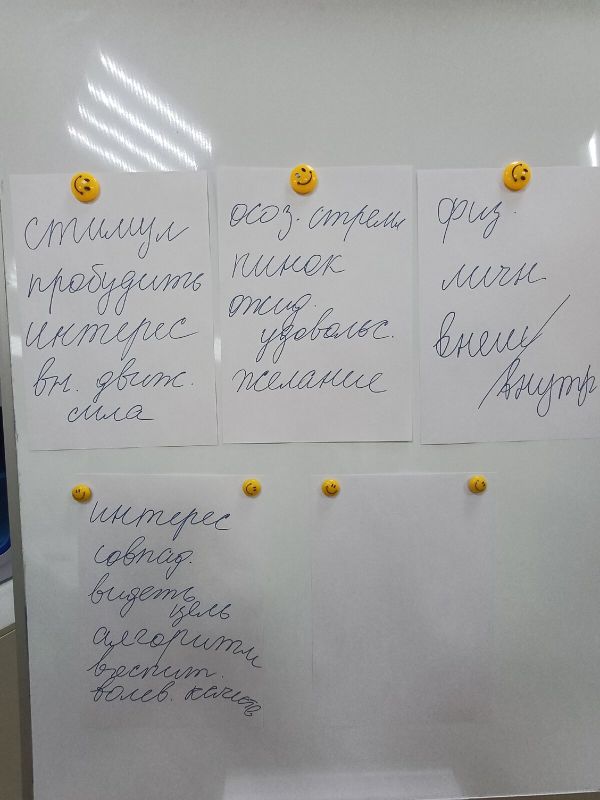 стимул
пробудить
интерес
вн. движ.
сила
осоз. стремл
пинок
ожид.
удовольс.
желание
физ.
личн
внеш/
внутр
интерес
совпад.
видеть
цель
алгоритм
воспит.
волев. качеств